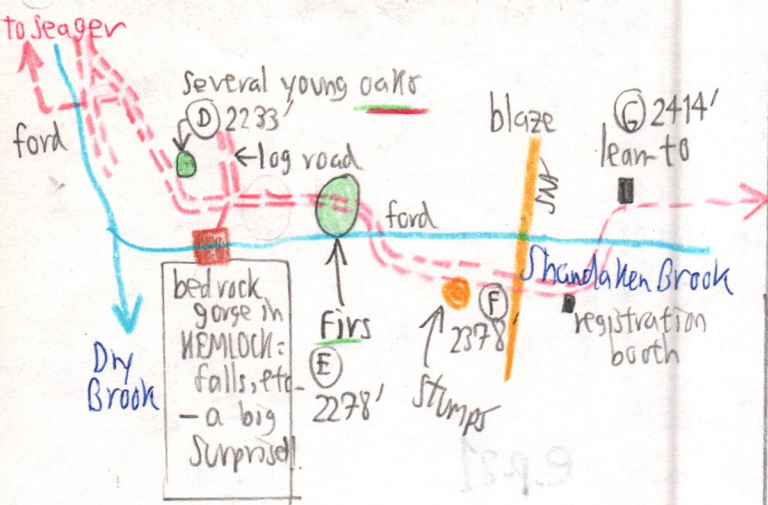 to Seager
ford
several young oaks
D 2233'
←log road
blaze
G 2414'
lean-to
ford
Shandaken Brook
bedrock
gorge in
HEMLOCK:
falls, etc.
- a big
surprise!!
Firs
E
2278'
Stumps
F
2378'
registration
booth
Dry
Brook